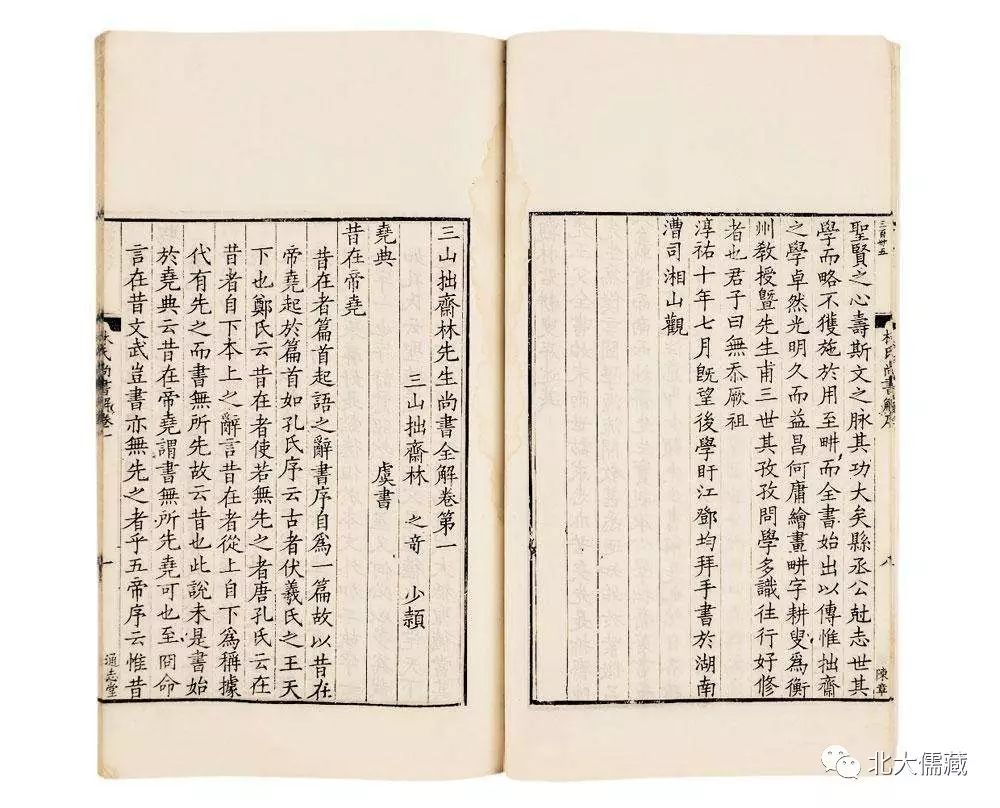 聖賢之心壽斯文之脉其功大矣縣丞公尅志世其
學而略不獲施於用至畊而全書始出以傳惟拙齋
之學卓然光明久而益昌何庸繪畫畊字耕叟爲衡
州教授暨先生甫三世其孜孜問學多識往行好修
者也君子曰無忝厥祖
淳祐十年七月旣望後學盱江鄧均拜手書於湖南
漕司湘山觀
三百廿五
林氏尚書解序
八
陳章
三山拙齋林先生尚書全解卷第一
三山拙齋林 之奇 少穎
堯典 虞書
昔在帝堯
昔在者篇首起語之辭書序自爲一篇故以昔在
帝堯起於篇首如孔氏序云古者伏羲氏之王天
下也鄭氏云昔在者使若無先之者唐孔氏云在
昔者自下本上之辭言昔在者從上自下爲稱據
代有先之而書無所先故云昔也此說未是書始
於堯典云昔在帝堯謂書無所先堯可也至冏命
言在昔文武豈書亦無先之者乎五帝序云惟昔
林氏尚書解卷一
一
通志堂
北大儒藏